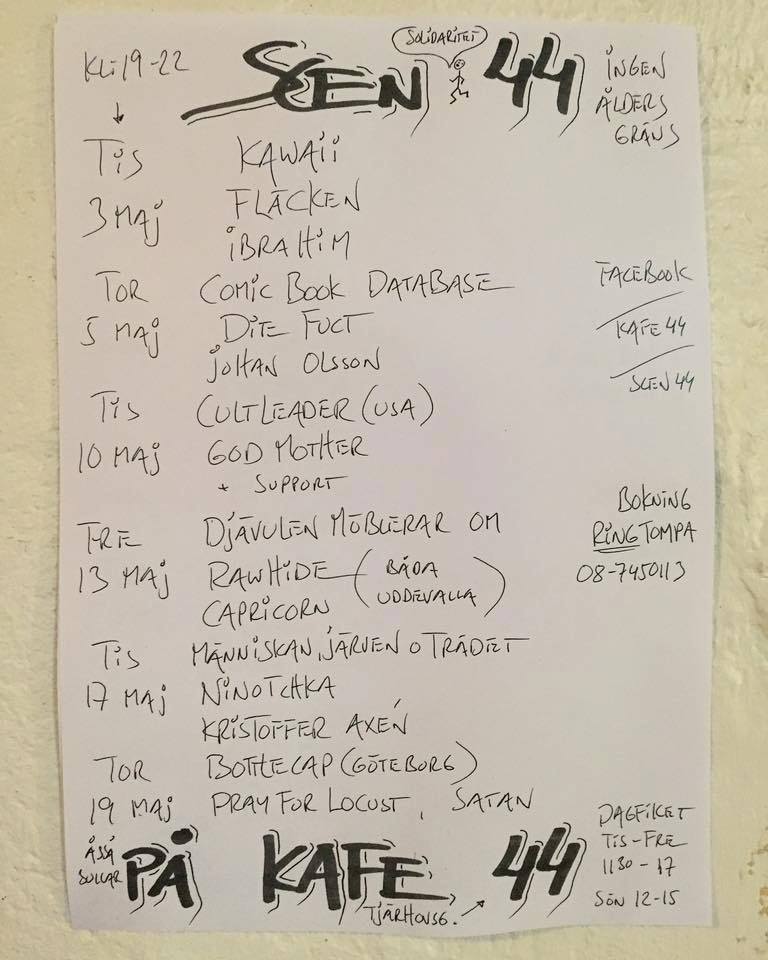 Kl: 19-22
SCEN 44
SOLIDARITET
INGEN
ÅLDERS
GRÄNS
TIS
3 MAJ
KAWAII
FLÄCKEN
IBRAHIM
TOR
5 MAJ
COMIC BOOK DATABASE
DITE FUCT
JOHAN OLSSON
FACEBOOK
KAFE 44
SCEN 44
TIS
10 MAJ
CULTLEADER (USA)
GOD MOTHER
+ SUPPORT
FRE
13 MAJ
DJÄVULEN MÖBLERAR OM
RAWHIDE
CAPRICORN
(BÅDA
UDDEVALLA)
BOKNING
RING TOMPA
08-7450113
TIS
17 MAJ
MÄNNISKAN, JÄRVEN O TRÄDET
NINOTCHKA
KRISTOFFER AXÉN
TOR
19 MAJ
BOTTLECAP (GÖTEBORG)
PRAY FOR LOCUST, SATAN
ÅSSÅ
BULLAR
PÅ KAFE 44
TJÄRHOVSG.
DAGFIKET
TIS-FRE
1130-17
SÖN 12-15